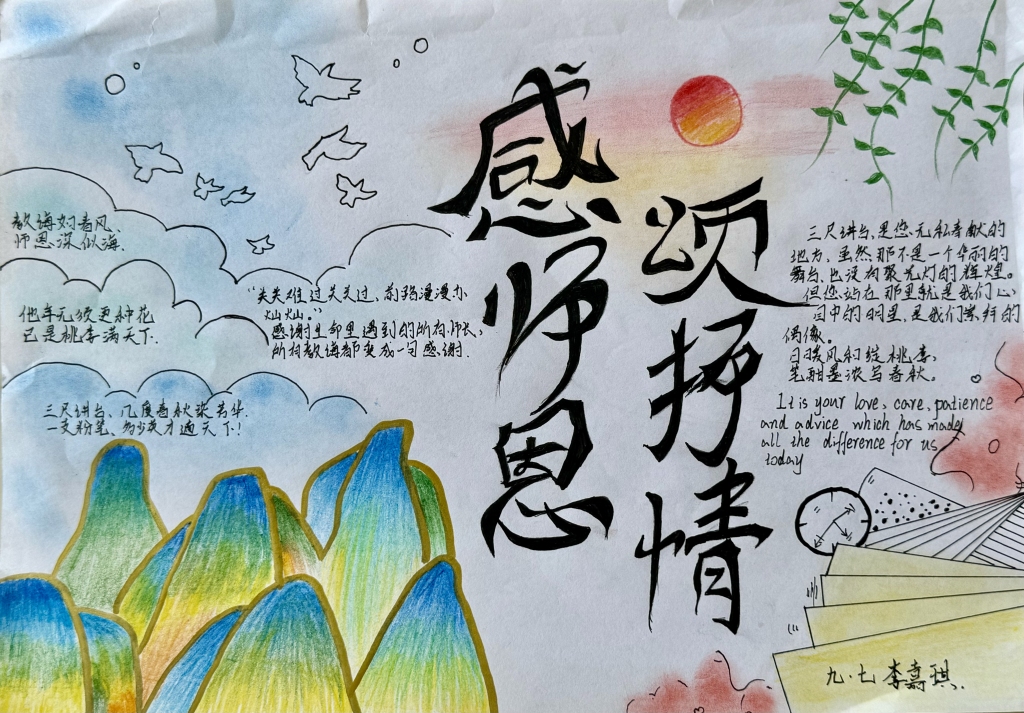 感师恩
颂抒情
教诲如春风，
师恩深似海.
他年无须更种花
已是桃李满天下.
三尺讲台、几度春秋染芳华.
一支粉笔、多少英才遍天下！
“关关难过关关过、前路漫漫亦
灿灿。”
感谢生命里遇到的所有师长，
所有教诲都变成一句感谢.
三尺讲台，是您无私奉献的
地方，虽然那不是一个华丽的
舞台，也没有聚光灯的辉煌。
但您站在那里就是我们心
目中的明星，是我们崇拜的
偶像。
日暖风和绽桃李，
笔酣墨浓写春秋。
It is your love, care, patience
and advice which has made
all the difference for us
today
九·七 李嘉琪.